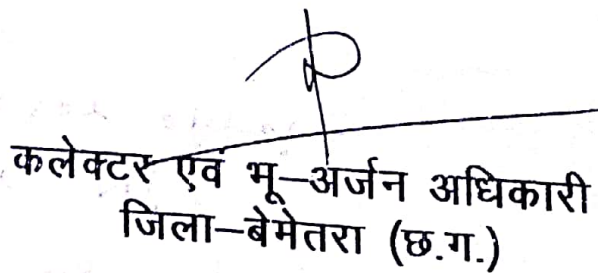 कलेक्टर एवं भू–अर्जन अधिकारी
जिला–बेमेतरा (छ.ग.)